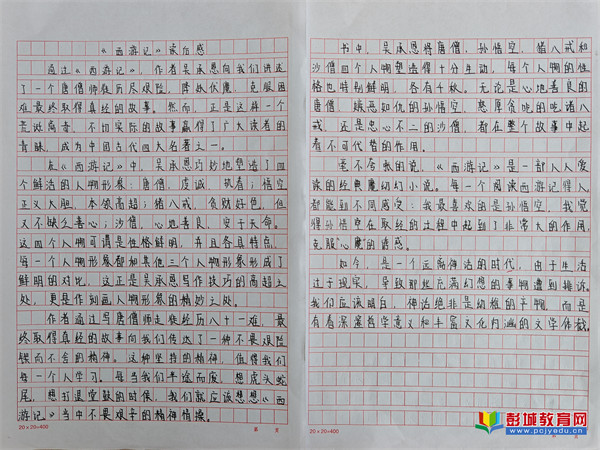 《西游记》读后感
通过《西游记》，作者吴承恩向我们讲述
了一个唐僧师徒历尽艰险，降妖伏魔，克服困
难最终取得真经的故事。然而，正是这样一个
荒诞离奇，不切实际的故事赢得了广大读者的
青睐，成为中国古代四大名著之一。
在《西游记》中，吴承恩巧妙地塑造了四
个鲜活的人物形象：唐僧，虔诚，执着；悟空
正义大胆，本领高超；猪八戒，贪财好色，但
又不缺乏善心；沙僧，心地善良，安于天命。
这四个人物可谓是性格鲜明，并且各具特点，
每一个人物形象都和其他三个人物形象成了
鲜明的对比，这正是吴承恩写作技巧的高超之
处，更是作刻画人物形象的精妙之处。
作者通过写唐僧师走徒经历八十一难，最
终取得真经的故事向我们传达了一种不畏艰险
锲而不舍的精神。这种坚持的精神，值得我们
每一个人学习。每当我们半途而废，想虎头蛇
尾，想打退堂鼓的时候，我们就应该想想《西
游记》当中不畏艰辛的精神情操。
20×20=400
第 页
书中，吴承恩将唐僧，孙悟空，猪八戒和
沙僧四个人物塑造得十分生动，每个人物的性
格也特别鲜明，各有千秋。无论是心地善良的
唐僧，嫉恶如仇的孙悟空，憨厚贪吃的吃诸八
戒，还是忠心不二的沙僧，都在整个故事中起
着不可代替的作用。
毫不夸张的说，《西游记》是一部人人爱
读的经典魔幻幻小说。每一个阅读西游记得人
都能到不同感受：我最喜欢的是孙悟空，我觉
得孙悟空在取经的过程中起到了非常大的作用，
克服“心魔”的诱惑。
如今，是一个远离神话的时代，由于生活
过于现实，导致那些充满幻想的事物遭到排斥，
我们应该明白，神话绝非是幼稚的产物，而是
有着深邃哲学意义和丰富文化内涵的文学作戤
20×20=400
页
彭城教育网
www.pcjyedu.cn